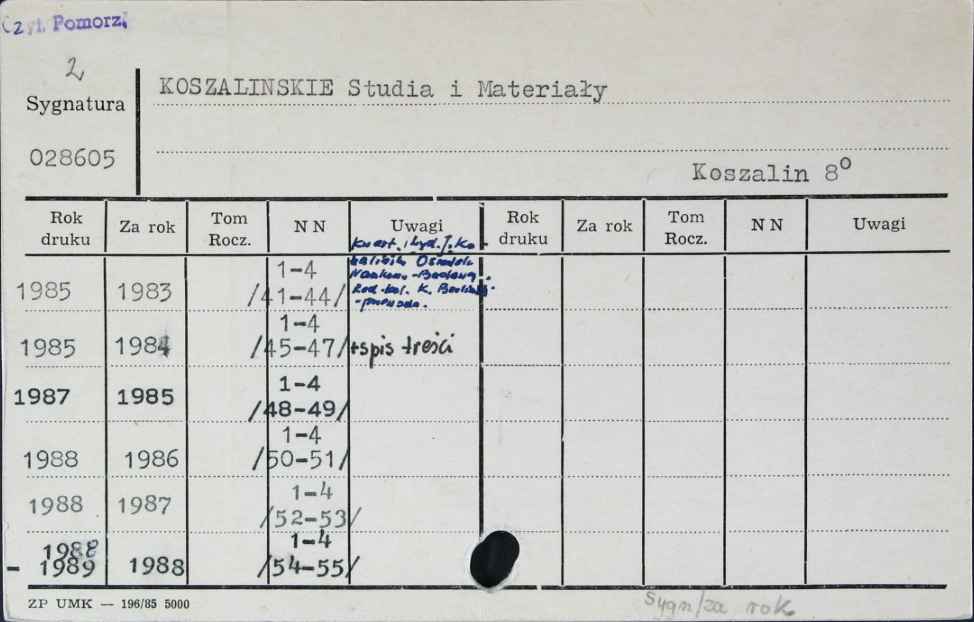 Czyt. Pomorz.
2
Sygnatura
028605
KOSZALINSKIE Studia i Materiały
Koszalin 8°
Rok druku Za rok Tom Rocz. N N Uwagi Rok druku Za rok Tom Rocz. N N Uwagi
Kwart. Wyd. Ko-
Ośrodek
Naukowo-Badawcz.
Red. K.
1-4
1985 1983 /41-44/
1-4
1985 1984 /45-47/ +spis treści
1-4
1987 1985 /48-49/
1-4
1988 1986 /50-51/
1-4
1988 1987 /52-53/
1988 1-4
- 1989 1988 /54-55/
ZP UMK — 196/85 5000
Sygn/za rok